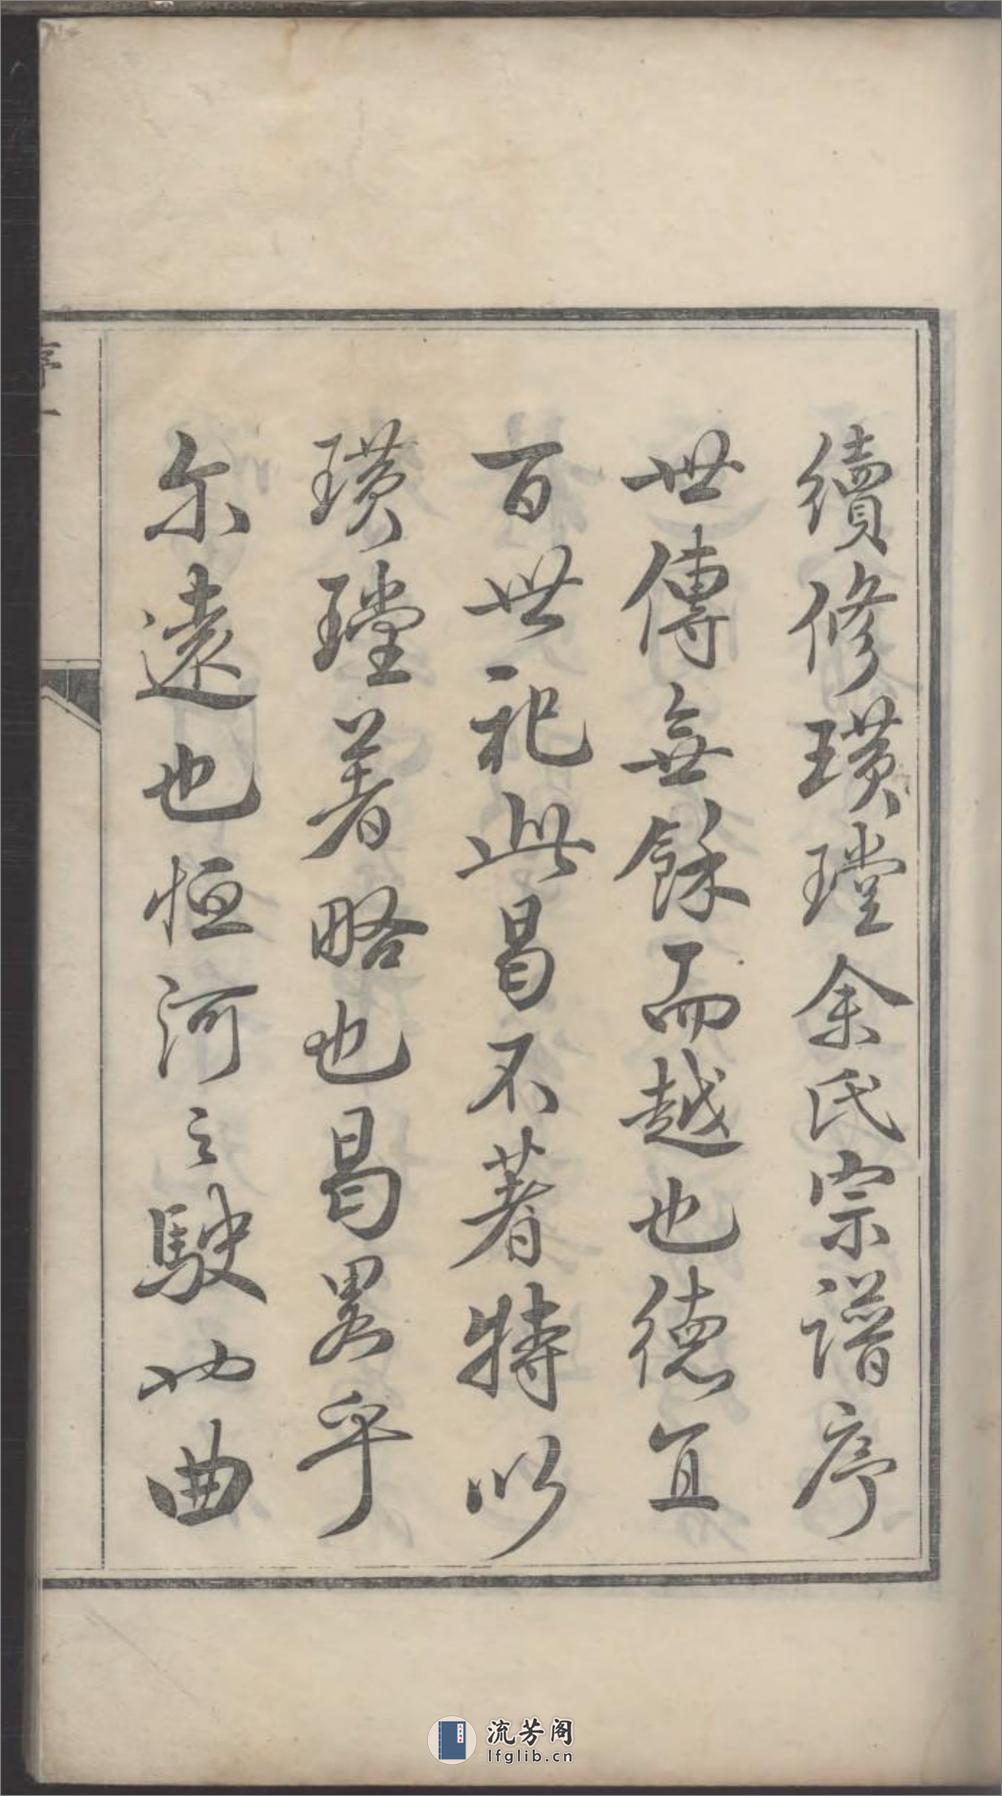 續修璜瑝余氏宗譜序
世傳無餘而越也德宜
百世祀此曷不著特以
璜瑝著略也曷畧乎
尔遠也恒河之駛也曲
序一
流芳阁
lfglib.cn